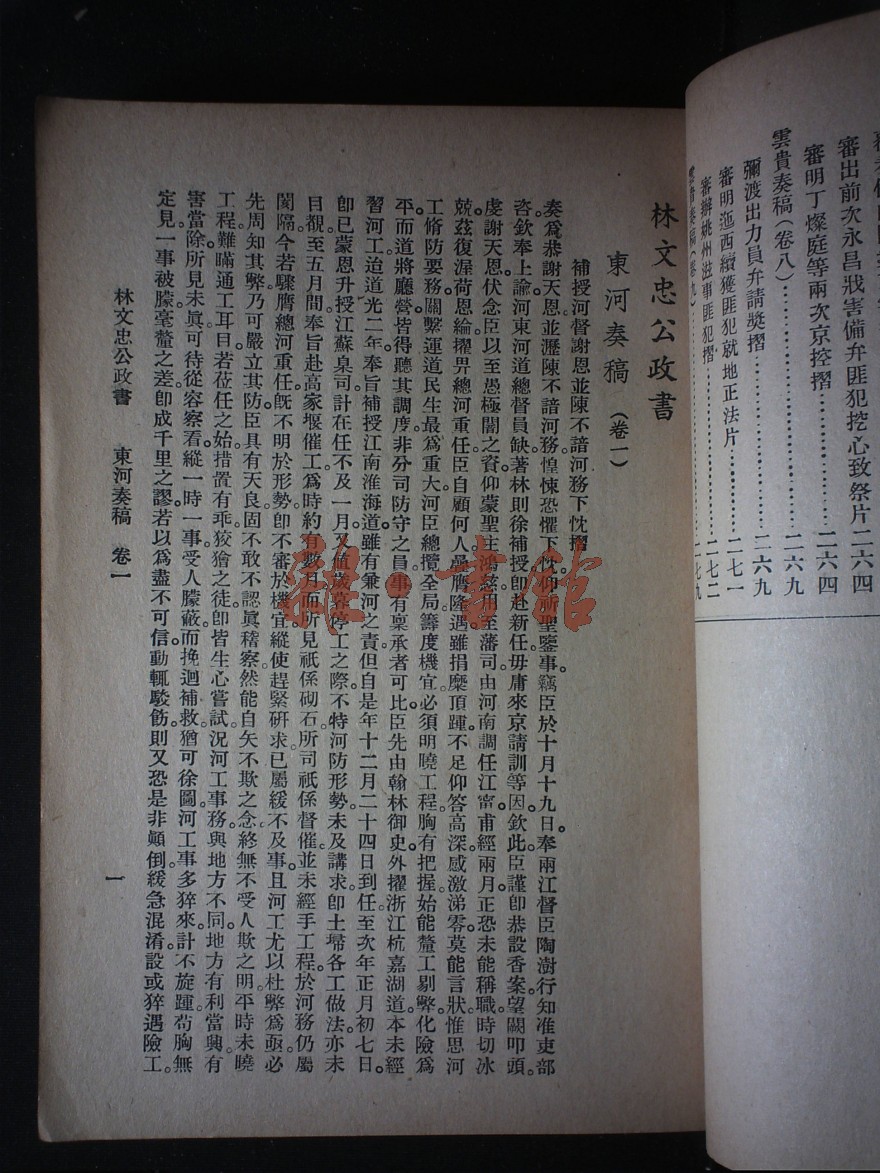 審出前次永昌戕害備弁匪犯挖心致祭片二六四
審明丁燦庭等兩次京控摺…………二六四
雲貴奏稿(卷八)…………二六九
彌渡出力員弁請獎摺…………二六九
審明迤西續獲匪犯就地正法片…………二七一
審辦姚州滋事匪犯摺…………二七二
林文忠公政書
東河奏稿(卷一)
補授河督謝恩並陳不諳河務下忱摺
奏爲恭謝天恩並瀝陳不諳河務惶悚恐懼下忱。仰祈聖鑒事。竊臣於十月十九日。奉兩江督臣陶澍行知准吏部
咨欽奉上諭河東河道總督員缺著林則徐補授卽赴新任毋庸來京請訓等因。欽此。臣謹卽恭設香案。望闕叩頭。
虔謝天恩伏念臣以至愚極闇之資仰蒙聖主鴻慈洊至藩司由河南調任江甯甫經兩月正恐未能稱職。時切冰
兢茲復渥荷恩綸擢畀總河重任臣自顧何人疊膺隆遇雖捐糜頂踵不足仰答高深。感激涕零。莫能言狀惟思河
工修防要務關繫運道民生最爲重大河臣總攬全局籌度機宜。必須明曉工程胸有把握始能釐工剔弊。化險爲
平而道將廳營皆得聽其調度。非分司防守之員事有稟承者可比臣先由翰林御史外擢浙江杭嘉湖道本未經
習河工迨道光二年。奉旨補授江南淮海道雖有兼河之責但自是年十二月二十四日到任至次年正月初七日。
卽已蒙恩升授江蘇臬司計在任不及一月又值歲暮停工之際不特河防形勢未及講求卽土埽各工做法亦未
目覩至五月間奉旨赴高家堰催工爲時約有數月而所見祇係砌石。所司祇係督催並未經手工程於河務仍屬
閡隔今若驟膺總河重任旣不明於形勢卽不審於機宜縱使趕緊研求已屬緩不及事且河工尤以杜弊爲亟必
先周知其弊乃可嚴立其防臣具有天良固不敢不認眞稽察然能自矢不欺之念終無不受人欺之明。平時未曉
工程難瞞通工耳目若莅任之始措置有乖狡獪之徒卽皆生心嘗試況河工事務與地方不同。地方有利當興有
害當除所見未眞可待從容察看縱一時一事受人朦蔽而挽迴補救猶可徐圖河工事多猝來計不旋踵苟胸無
定見一事被朦毫釐之差卽成千里之謬若以爲盡不可信動輒駁飭則又恐是非顚倒緩急混淆設或猝遇險工。
林文忠公政書 東河奏稿 卷一
一